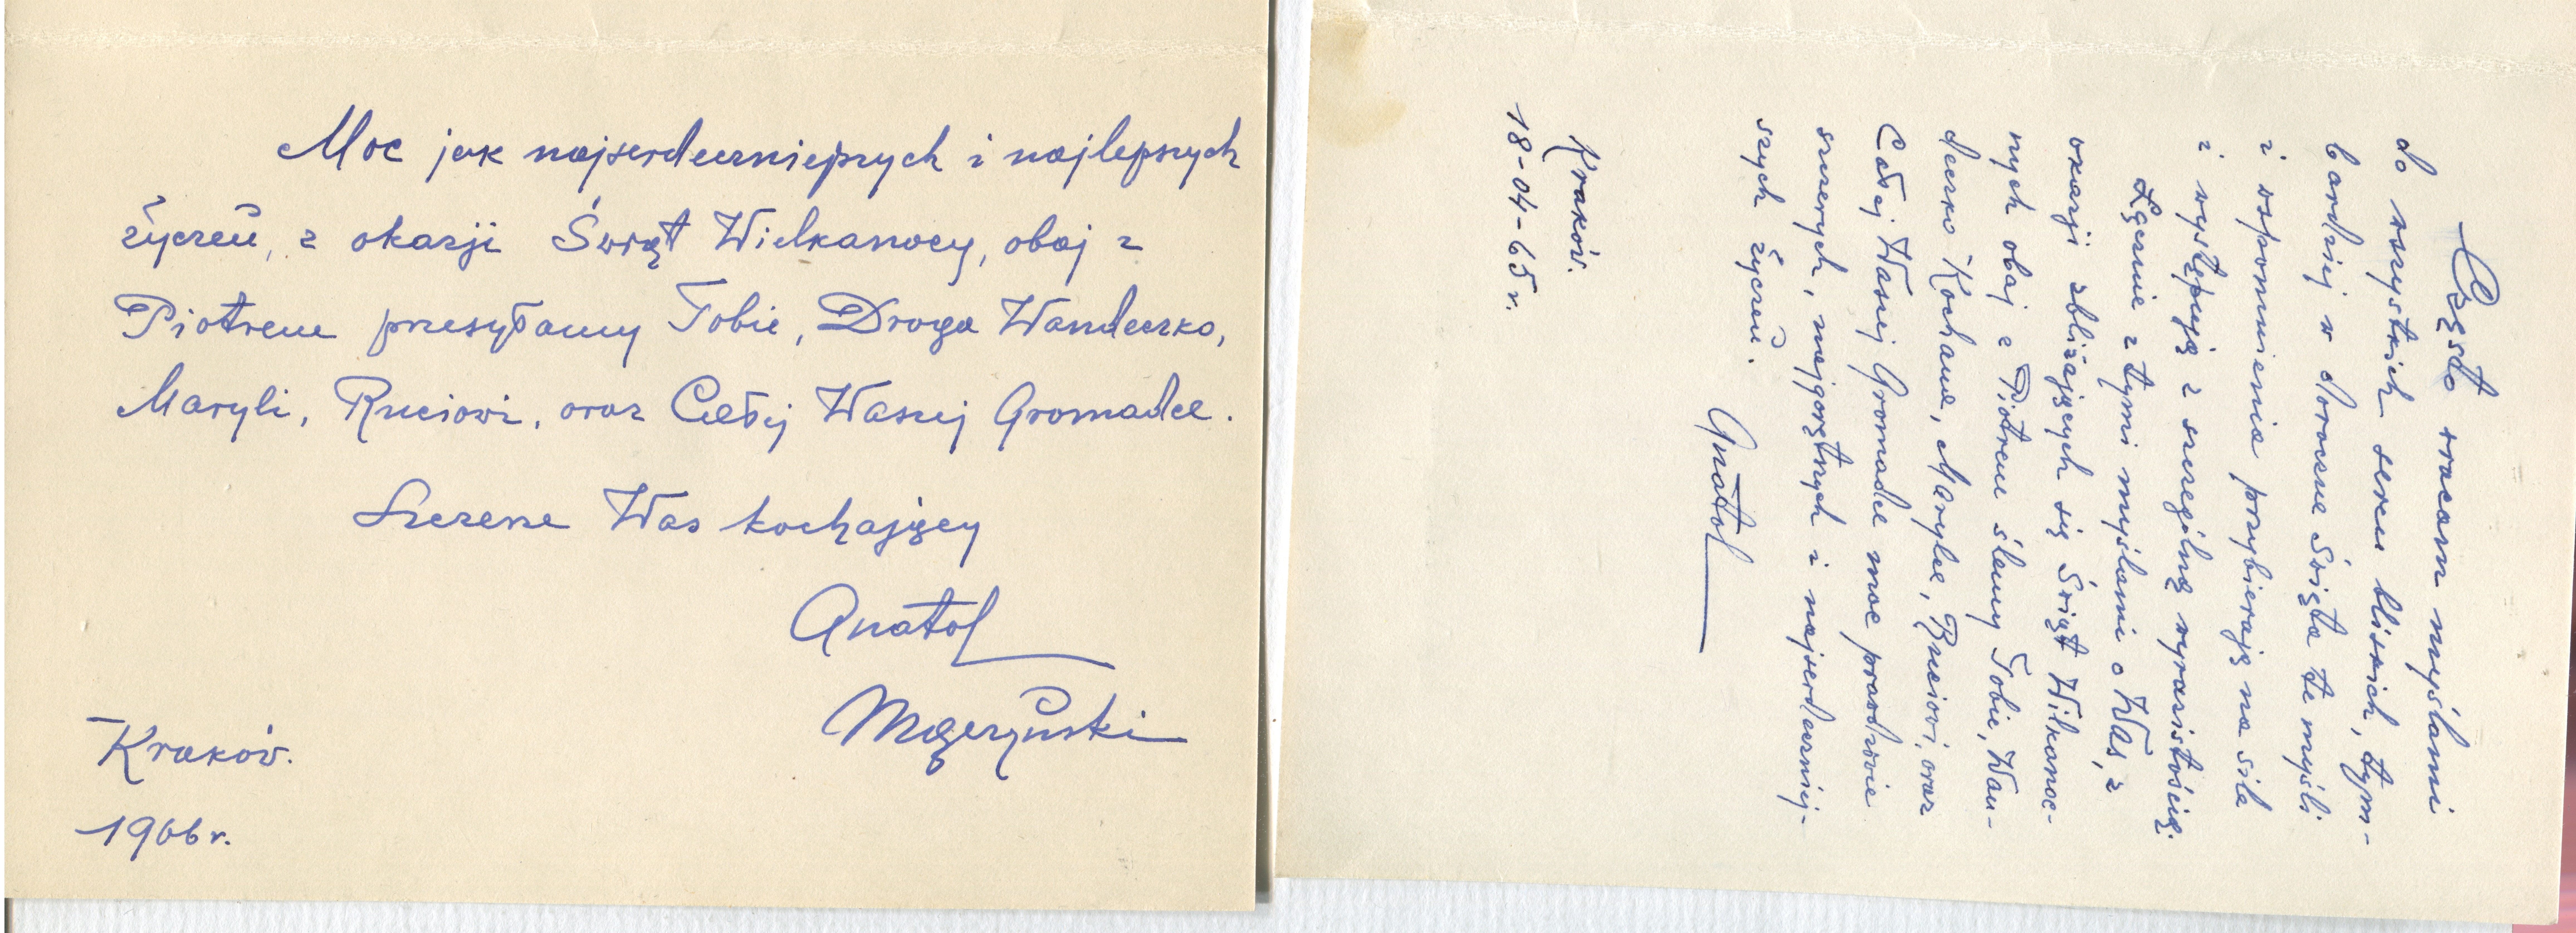 Moc jak najserdeczniejszych i najlepszych
życzeń, z okazji Świąt Wielkanocy, obaj z
Piotrem przesyłamy Tobie, Droga Wandeczko,
Maryli, Ruciowi, oraz Całej Waszej Gromadce.
Szczerze Was kochający
Anatol
Kraków.
1966 r.
Często wracam myślami
do wszystkich sercu bliskich, tym-
bardziej w doroczne Święta te myśli
i wspomnienia przybierają na sile
i występują z szczególną wyrazistością.
Łącznie z tymi myślami o Was, z
okazji zbliżających się Świąt Wilkanoc-
nych obaj z Piotrem ślemy Tobie, Wan-
deczko Kochana, Marylce, Ruciowi, oraz
Całej Waszej Gromadce moc prawdziwie
szczerych, najgorętszych i najserdeczniej-
szych życzeń.
Anatol
Kraków.
18-04-65 r.